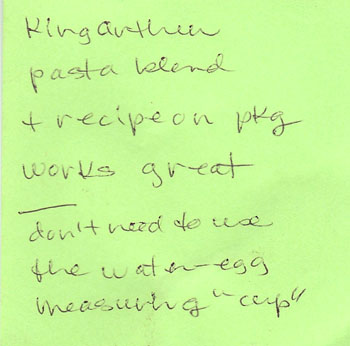 King Arthur
pasta blend
+ recipe on pkg
works great
don't need to use
the water-egg
measuring "cup"